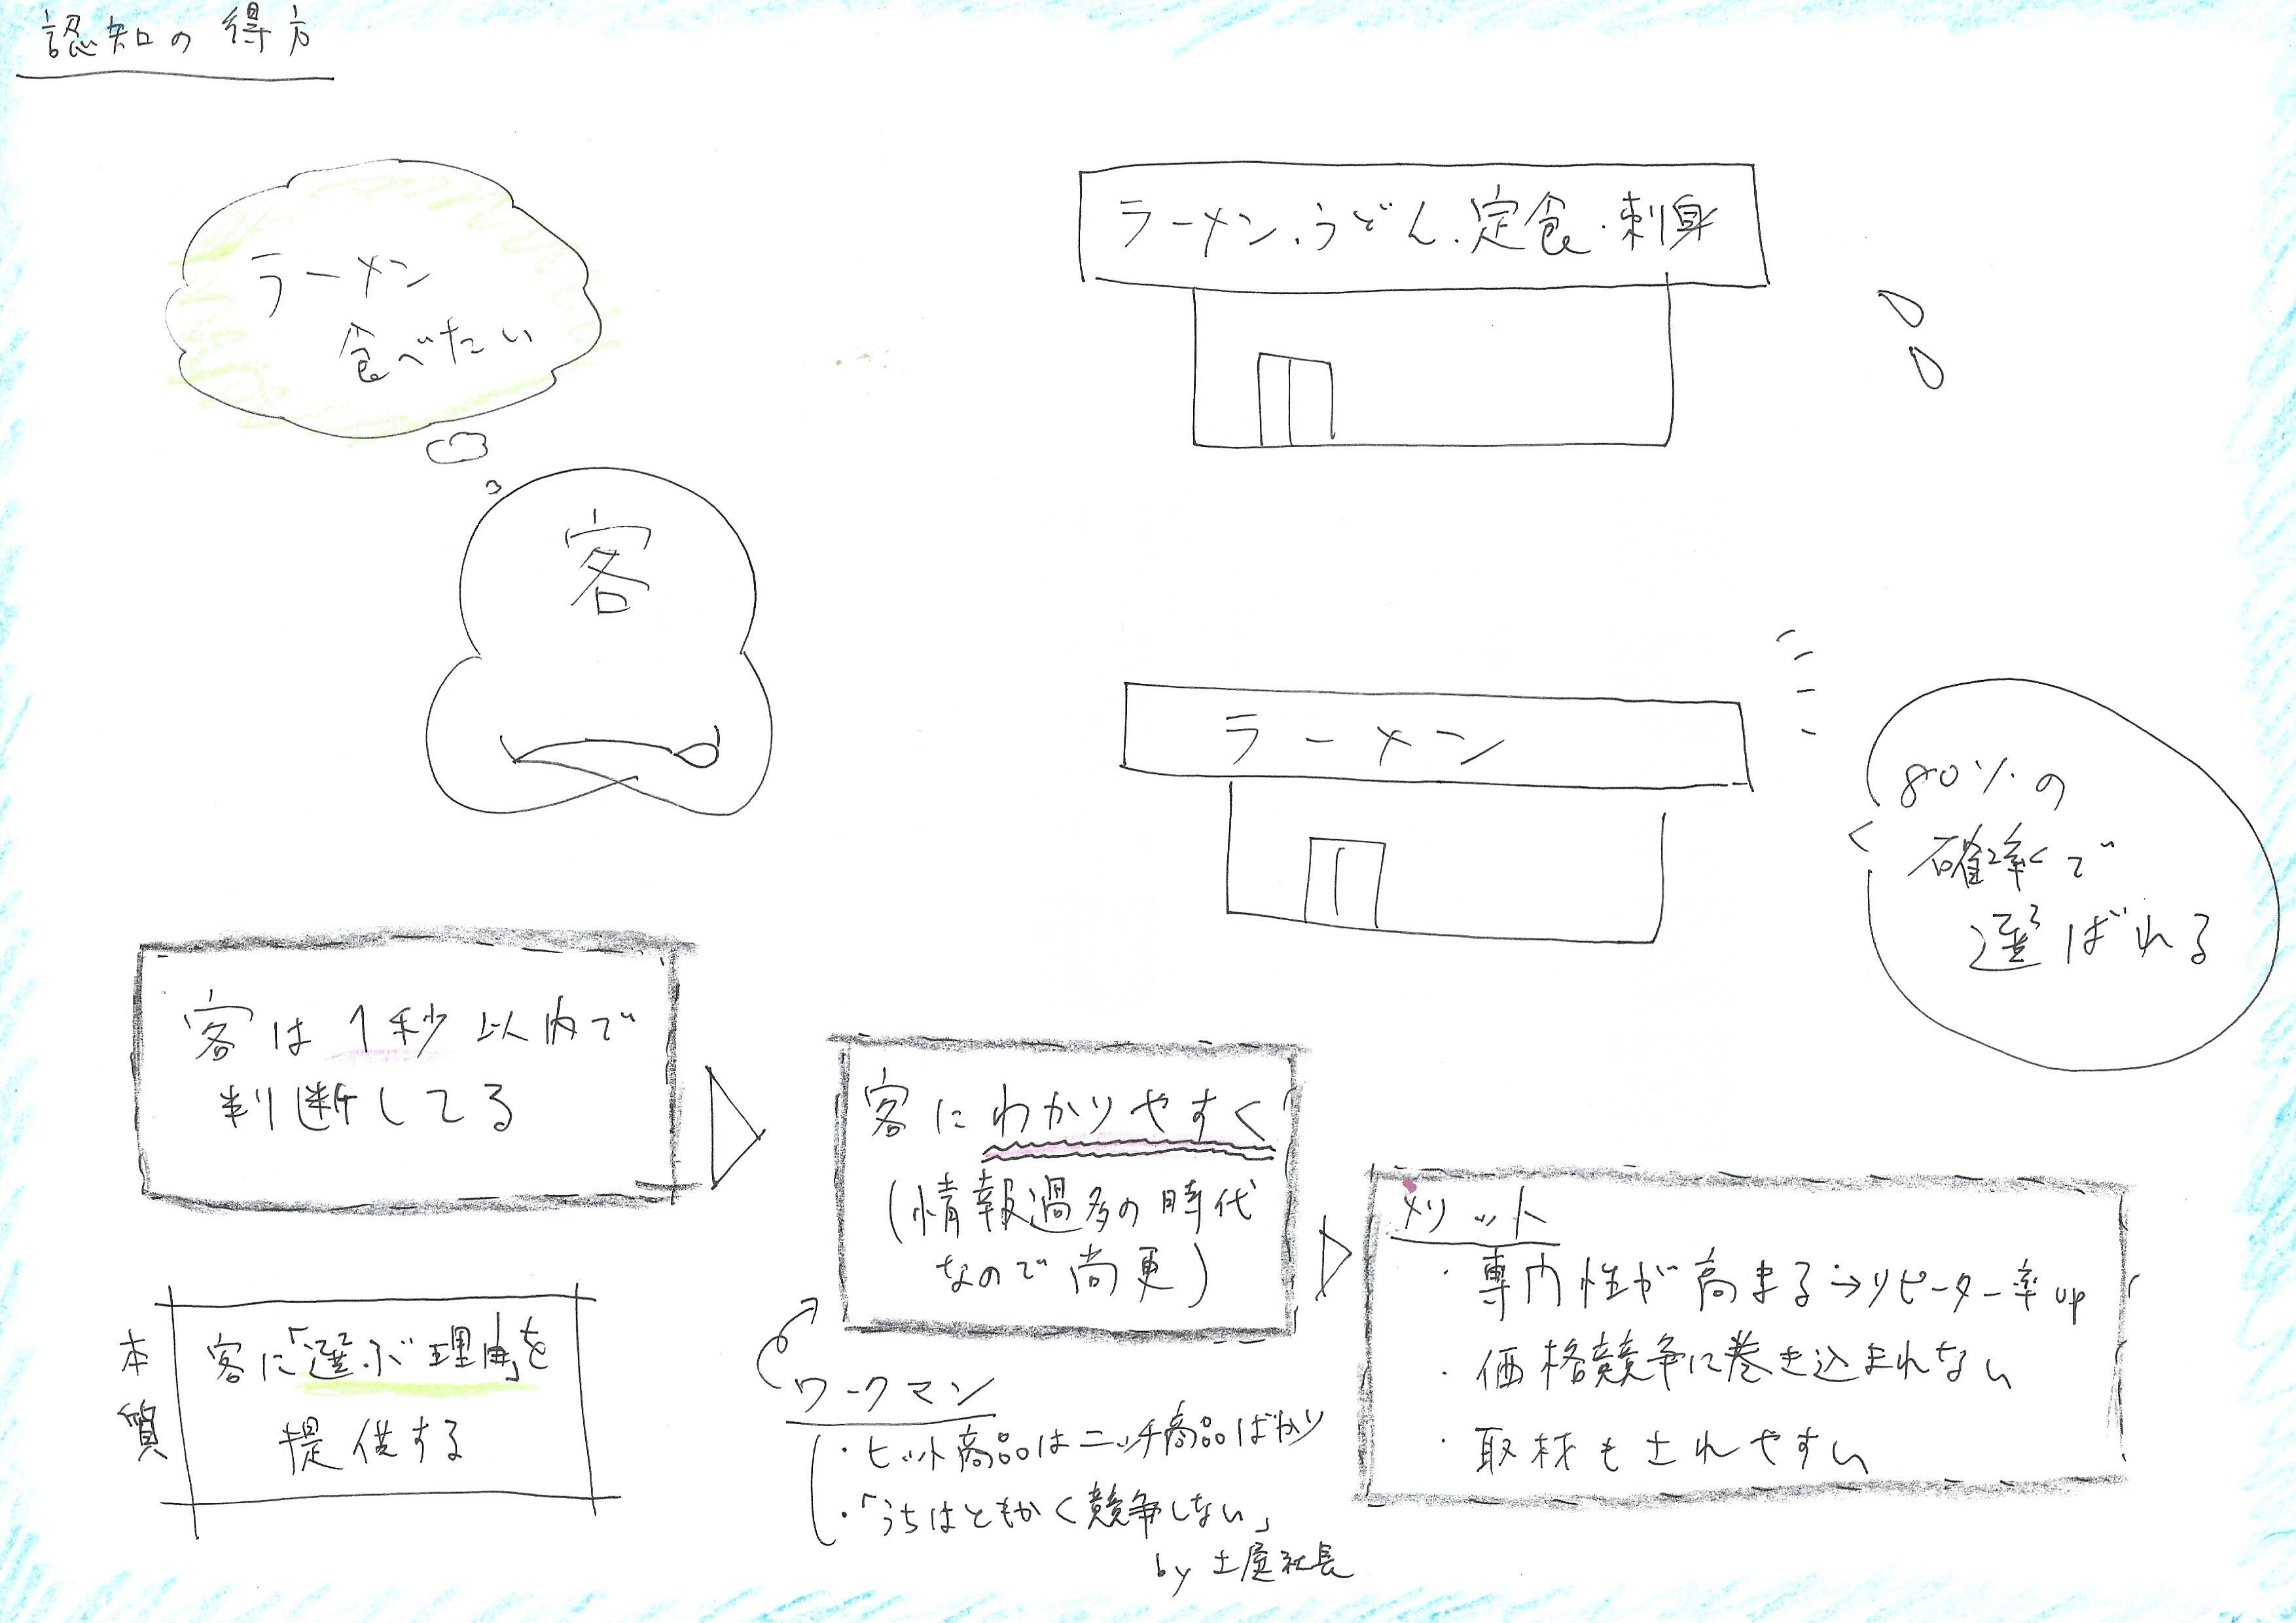 認知の得方
ラーメン
食べたい
客
ラーメン.うどん.定食.刺身
ラーメン
80%の
確率で
選ばれる
客は1秒以内で
判断してる
客にわかりやすく
(情報過多の時代
なので尚更)
メリット
・専門性が高まる→リピーター率up
・価格競争に巻き込まれない
・取材もされやすい
本質
客に「選ぶ理由」を
提供する
ワークマン
・ヒット商品はニッチ商品ばかり
・「うちはともかく競争しない」
by 土屋社長